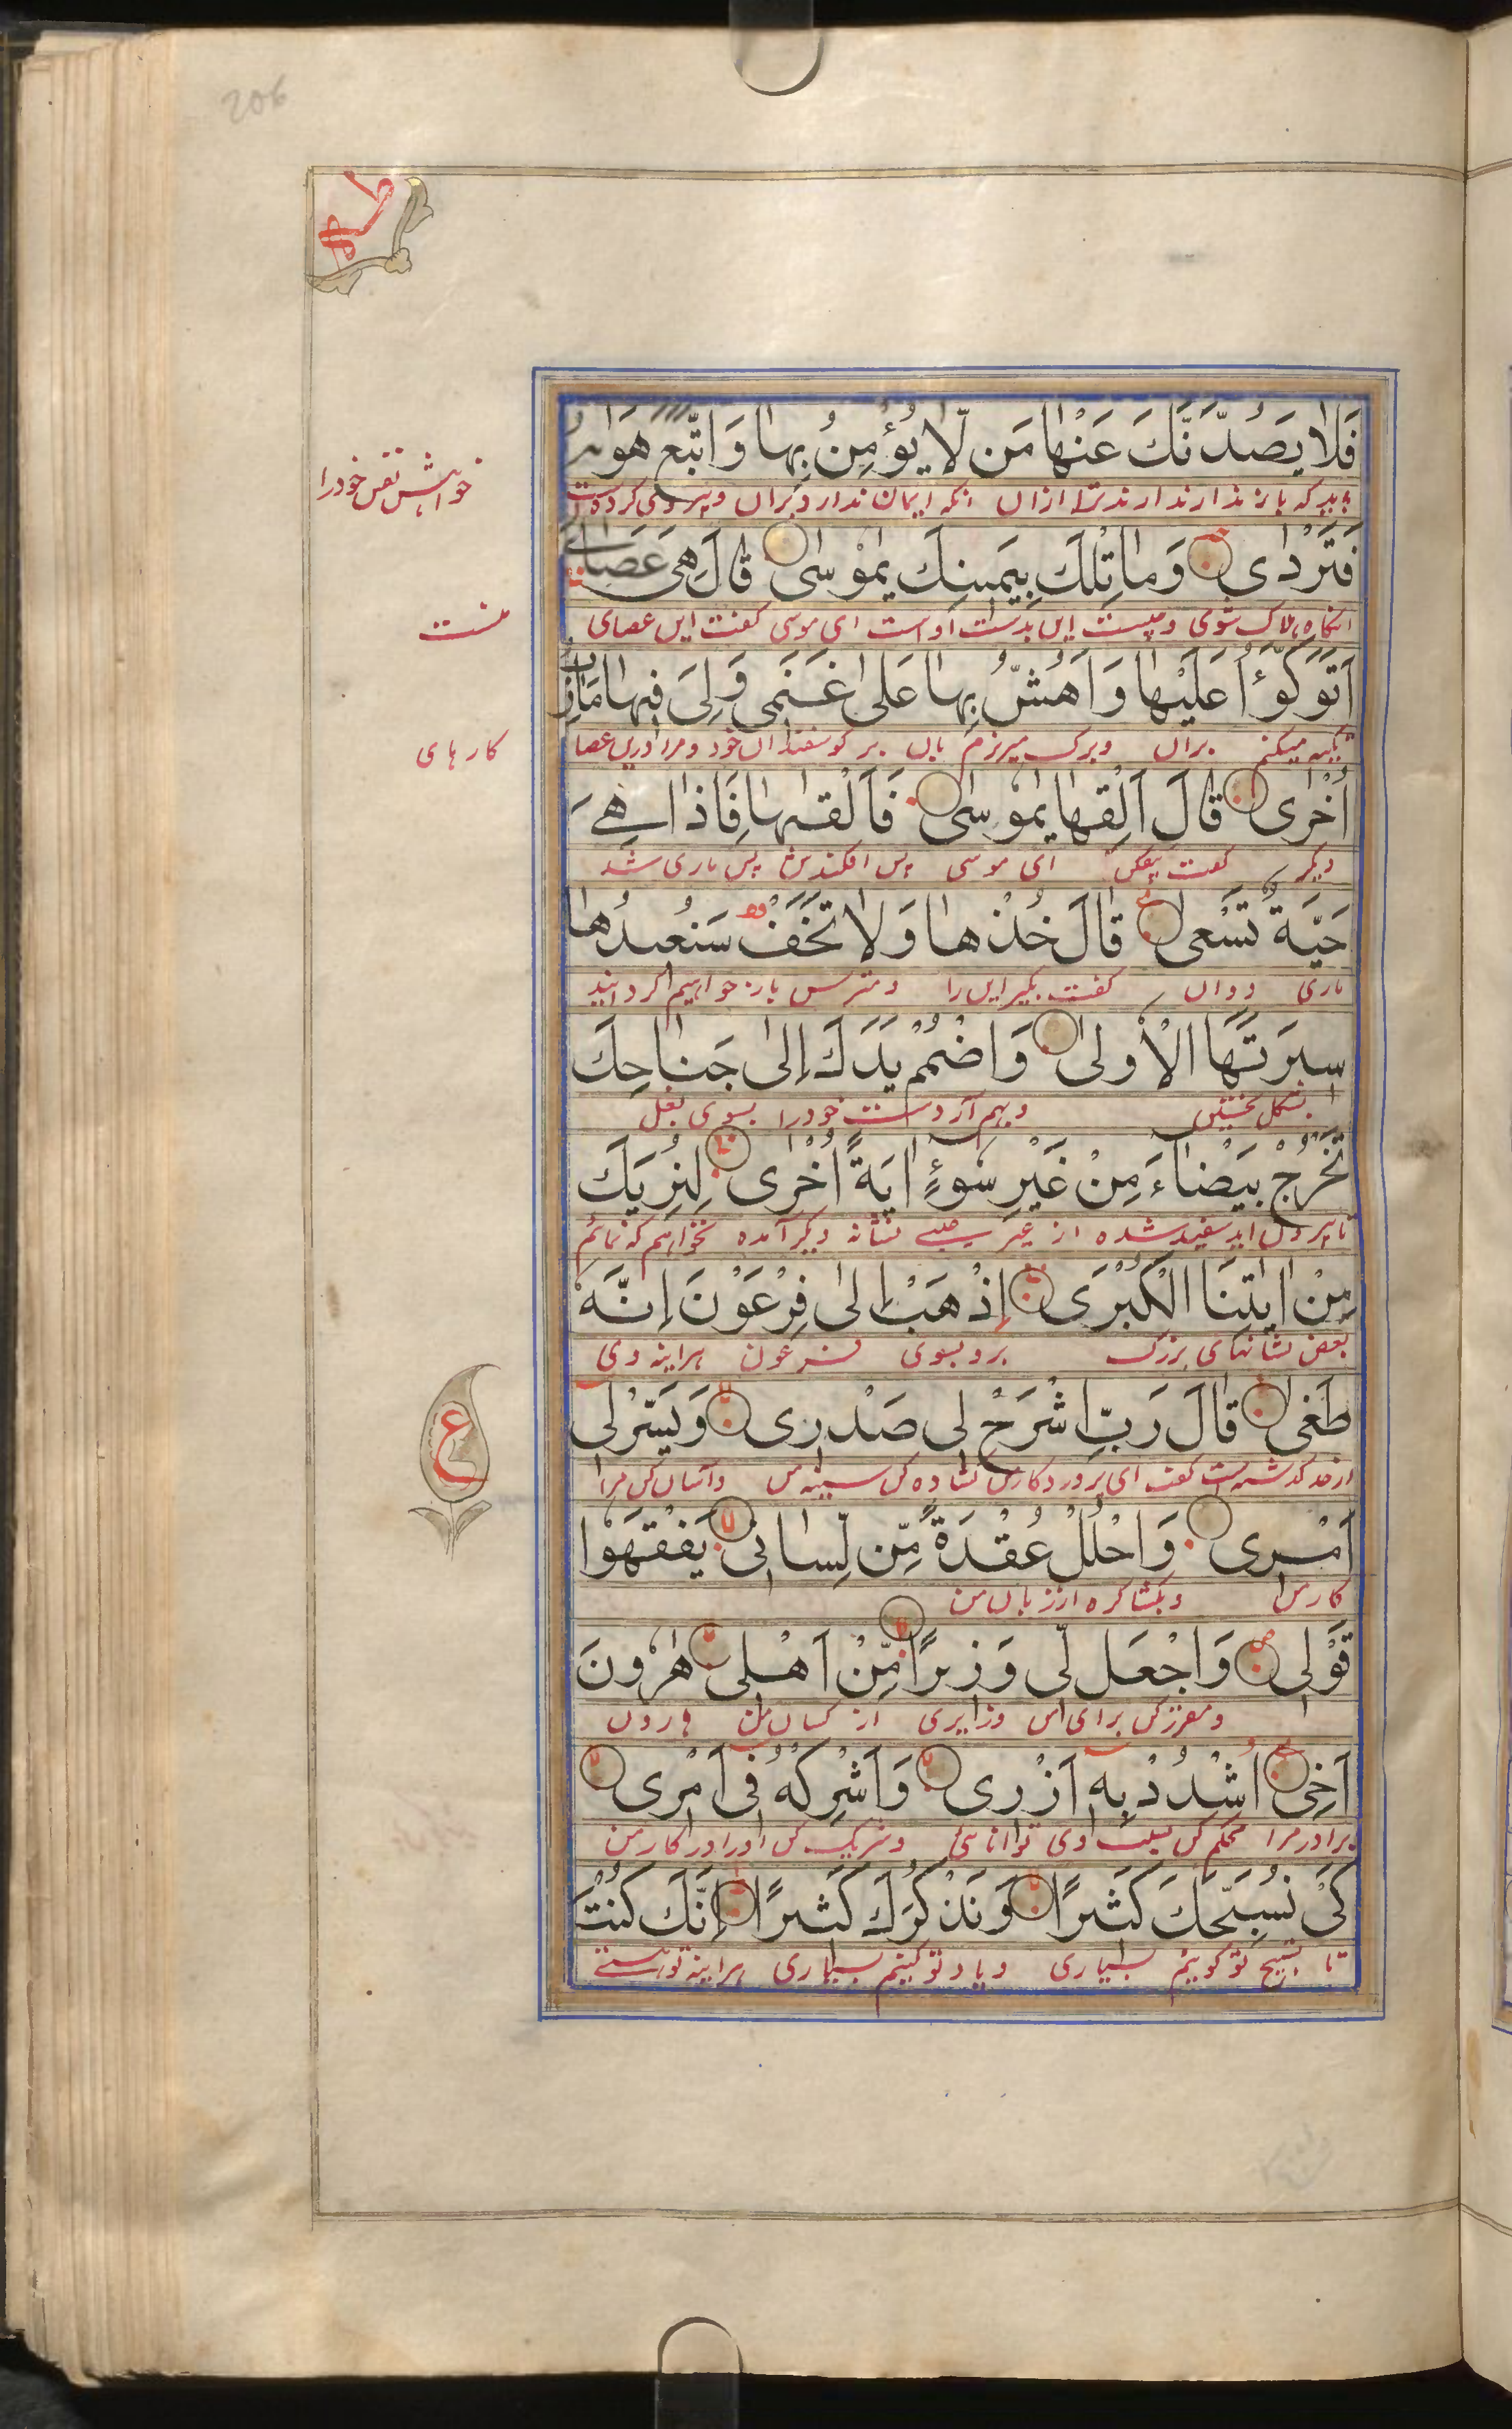 206
طه
فَلَا يَصُدَّنَّكَ عَنْهَا مَن لَّا يُؤْمِنُ بِهَا وَاتَّبَعَ هَوٰىهُ
باید که باز ندارند ترا ازان انکه ایمان ندارد بران و پیروی کرده است
خواهش نفس خود را
فَتَرْدٰی وَمَا تِلْكَ بِیَمِینِكَ یٰمُوسٰی قَالَ هِیَ عَصَایَ
انکاه هلاک شوی و چیست این بدست ای موسی کفت این عصای
منست
اَتَوَكَّؤُا عَلَیْهَا وَاَهُشُّ بِهَا عَلٰی غَنَمِی وَلِیَ فِیهَا مَاٰرِبُ
تکیه میکنم بران و برک میریزم بان بر کوسفندان خود و مرا درین عصا
کارهای
اُخْرٰی قَالَ اَلْقِهَا یٰمُوسٰی فَاَلْقٰىهَا فَاِذَا هِیَ
دیکر کفت بیفکن ای موسی پس افکندش پس ماری شد
حَیَّةٌ تَسْعٰی قَالَ خُذْهَا وَلَا تَخَفْ سَنُعِیدُهَا
ماری دوان کفت بکیر این را و مترس باز خواهیم کردانید
سِیرَتَهَا الْاُولٰی وَاضْمُمْ یَدَكَ اِلٰی جَنَاحِكَ
بشکل نخستین و بهم آر دست خود را بسوی بغل
تَخْرُجْ بَیْضَاءَ مِنْ غَیْرِ سُوءٍ اٰیَةً اُخْرٰی لِنُرِیَكَ
تا بیرون اید سفید شده از غیر عیبی نشانه دیکر آمده بخواهم که نمائم
مِنْ اٰیٰتِنَا الْكُبْرٰی اِذْهَبْ اِلٰی فِرْعَوْنَ اِنَّهٗ
بعض نشانهای بزرک برو بسوی فرعون هراینه وی
طَغٰی قَالَ رَبِّ اشْرَحْ لِی صَدْرِی وَیَسِّرْ لِی
از حد کذشته است کفت ای پروردکار من کشاده کن سینه من و آسان کن مرا
ع
اَمْرِی وَاحْلُلْ عُقْدَةً مِّن لِّسَانِی یَفْقَهُوا
کار من و بکشا کره از زبان من
قَوْلِی وَاجْعَل لِّی وَزِیرًا مِّنْ اَهْلِی هٰرُونَ
و مقرر کن برای من وزیری از کسان من هارون
اَخِی اشْدُدْ بِهٖ اَزْرِی وَاَشْرِكْهُ فِی اَمْرِی
برادر مرا محکم کن بسبب وی توانائی و شریک کن او را در کار من
كَیْ نُسَبِّحَكَ كَثِیرًا وَنَذْكُرَكَ كَثِیرًا اِنَّكَ كُنْتَ
تا تسبیح تو کوییم بسیاری و یاد تو کنیم بسیاری هراینه تو هستی